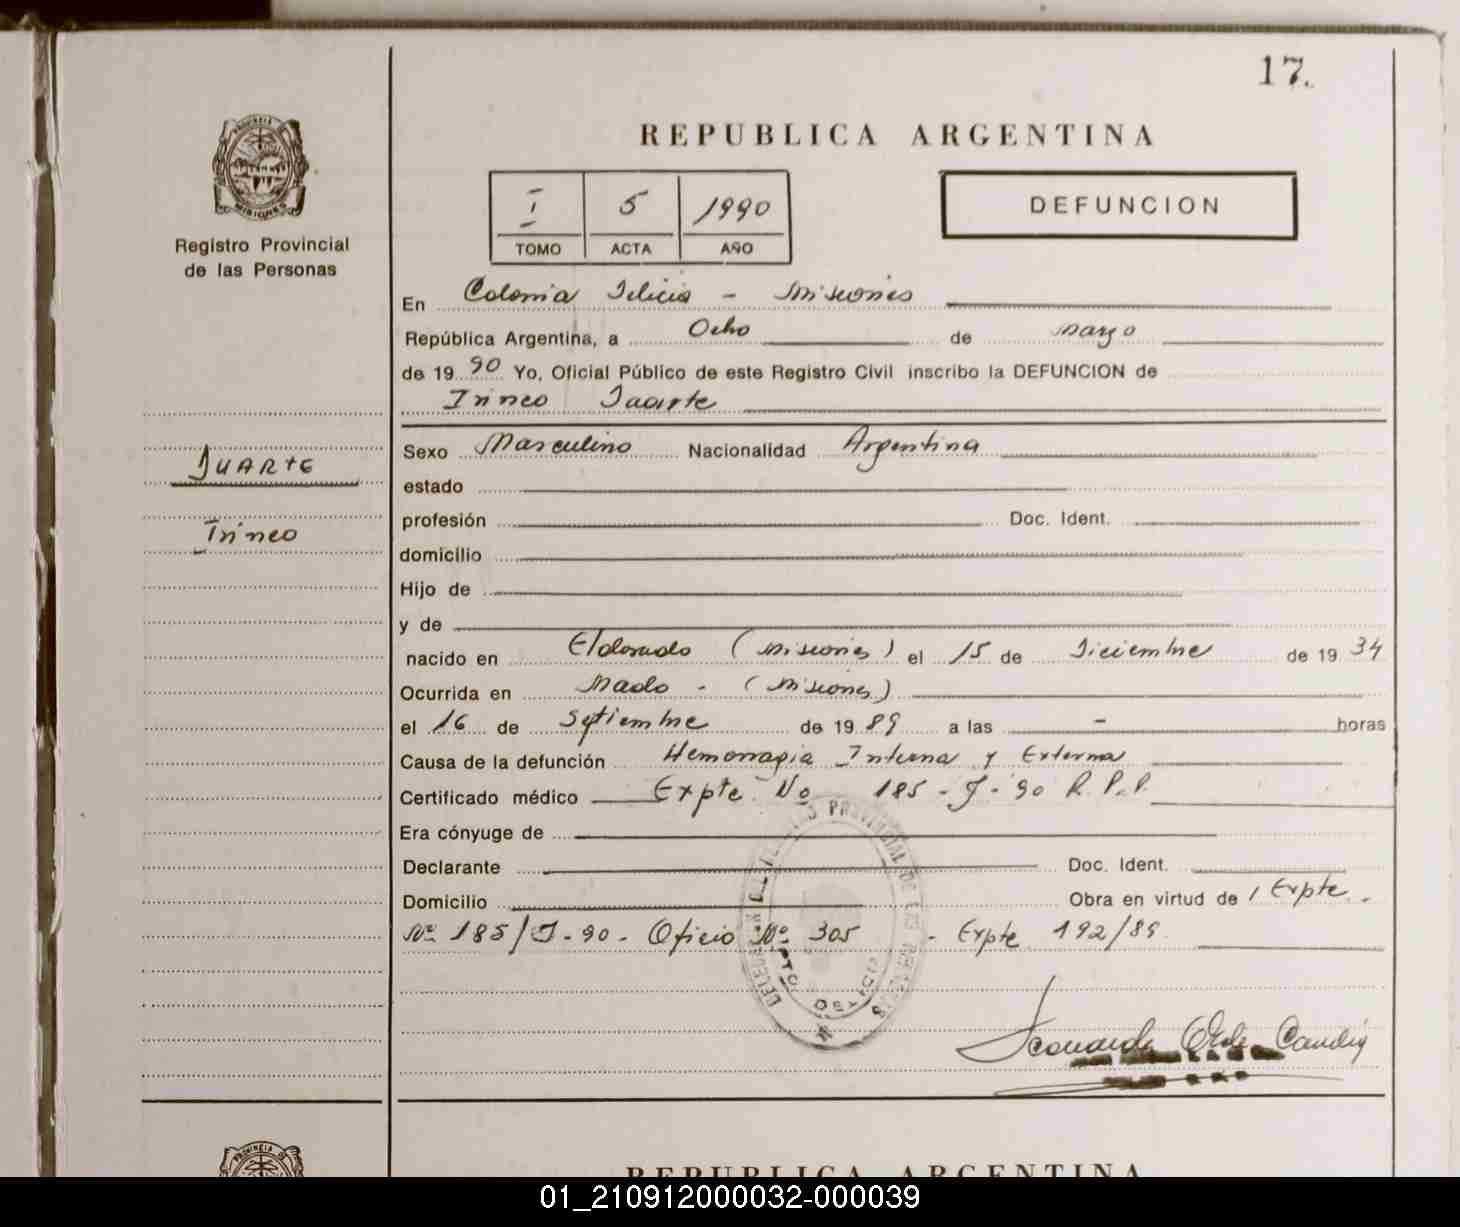 17.
PROVINCIA DE
MISIONES
Registro Provincial
de las Personas
REPUBLICA ARGENTINA
I 5 1990
TOMO ACTA AÑO
DEFUNCION
En Colonia Delicia - Misiones
República Argentina, a Ocho de Marzo
de 1990 Yo, Oficial Público de este Registro Civil inscribo la DEFUNCION de
Irineo Duarte
DUARTE
Irineo
Sexo Masculino Nacionalidad Argentina
estado
profesión Doc. Ident.
domicilio
Hijo de
y de
nacido en Eldorado (Misiones) el 15 de Diciembre de 1934
Ocurrida en Mado - (Misiones)
el 16 de Septiembre de 1989 a las - horas
Causa de la defunción Hemorragia Interna y Externa
Certificado médico Expte. No 185-J-90 R.P.P.
Era cónyuge de
Declarante Doc. Ident.
Domicilio Obra en virtud de Expte.
Nº 185/J-90- Oficio Nº 305 - Expte 192/89
PROVINCIAL DE LAS PERSONAS
DPTO.
PROVINCIA DE
REPUBLICA ARGENTINA
01_210912000032-000039